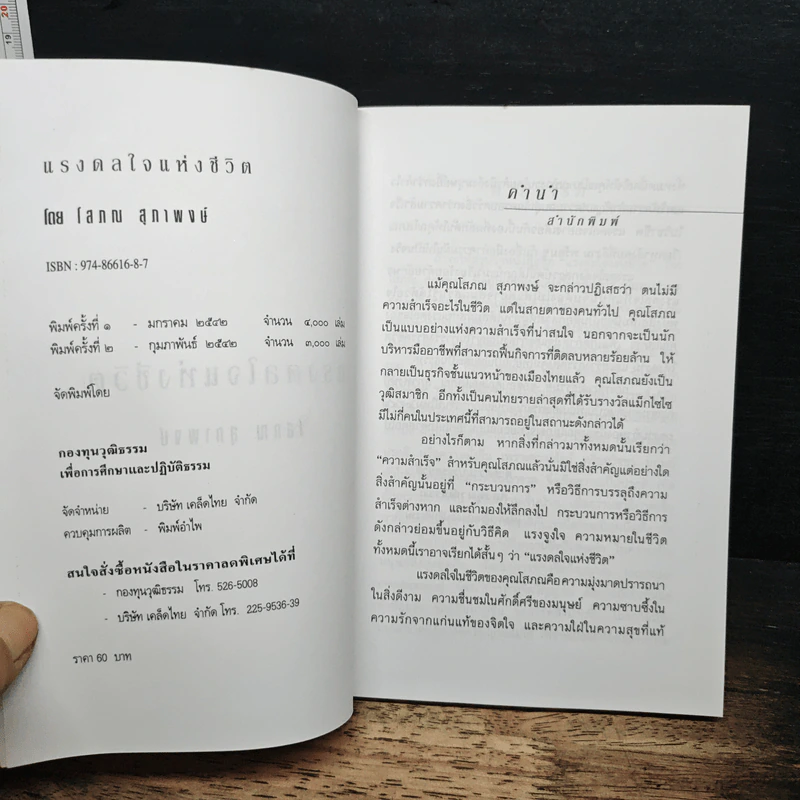 20
19
แรงดลใจแห่งชีวิต
โดย โสภณ สุภาพงษ์
ISBN : 974-86616-8-7
พิมพ์ครั้งที่ ๑ - มกราคม ๒๕๔๒ จำนวน ๔,๐๐๐ เล่ม
พิมพ์ครั้งที่ ๒ - กุมภาพันธ์ ๒๕๔๒ จำนวน ๓,๐๐๐ เล่ม
จัดพิมพ์โดย
กองทุนวุฒิธรรม
เพื่อการศึกษาและปฏิบัติธรรม
จัดจำหน่าย - บริษัท เคล็ดไทย จำกัด
ควบคุมการผลิต - พิมพ์อำไพ
สนใจสั่งซื้อหนังสือในราคาลดพิเศษได้ที่
- กองทุนวุฒิธรรม โทร. 526-5008
- บริษัท เคล็ดไทย จำกัด โทร. 225-9536-39
ราคา 60 บาท
คำนำ
สำนักพิมพ์
แม้คุณโสภณ สุภาพงษ์ จะกล่าวปฏิเสธว่า ตนไม่มี
ความสำเร็จอะไรในชีวิต แต่ในสายตาของคนทั่วไป คุณโสภณ
เป็นแบบอย่างแห่งความสำเร็จที่น่าสนใจ นอกจากจะเป็นนัก
บริหารมืออาชีพที่สามารถฟื้นกิจการที่ติดลบหลายร้อยล้าน ให้
กลายเป็นธุรกิจชั้นแนวหน้าของเมืองไทยแล้ว คุณโสภณยังเป็น
วุฒิสมาชิก อีกทั้งเป็นคนไทยรายล่าสุดที่ได้รับรางวัลแม็กไซไซ
มีไม่กี่คนในประเทศนี้ที่สามารถอยู่ในสถานะดังกล่าวได้
อย่างไรก็ตาม หากสิ่งที่กล่าวมาทั้งหมดนั้นเรียกว่า
“ความสำเร็จ” สำหรับคุณโสภณแล้วนั่นมิใช่สิ่งสำคัญแต่อย่างใด
สิ่งสำคัญนั้นอยู่ที่ “กระบวนการ” หรือวิธีการบรรลุถึงความ
สำเร็จต่างหาก และถ้ามองให้ลึกลงไป กระบวนการหรือวิธีการ
ดังกล่าวย่อมขึ้นอยู่กับวิธีคิด แรงจูงใจ ความหมายในชีวิต
ทั้งหมดนี้เราอาจเรียกได้สั้นๆ ว่า “แรงดลใจแห่งชีวิต”
แรงดลใจในชีวิตของคุณโสภณคือความมุ่งมาดปรารถนา
ในสิ่งดีงาม ความชื่นชมในศักดิ์ศรีของมนุษย์ ความซาบซึ้งใน
ความรักจากแก่นแท้ของจิตใจ และความใฝ่ในความสุขที่แท้